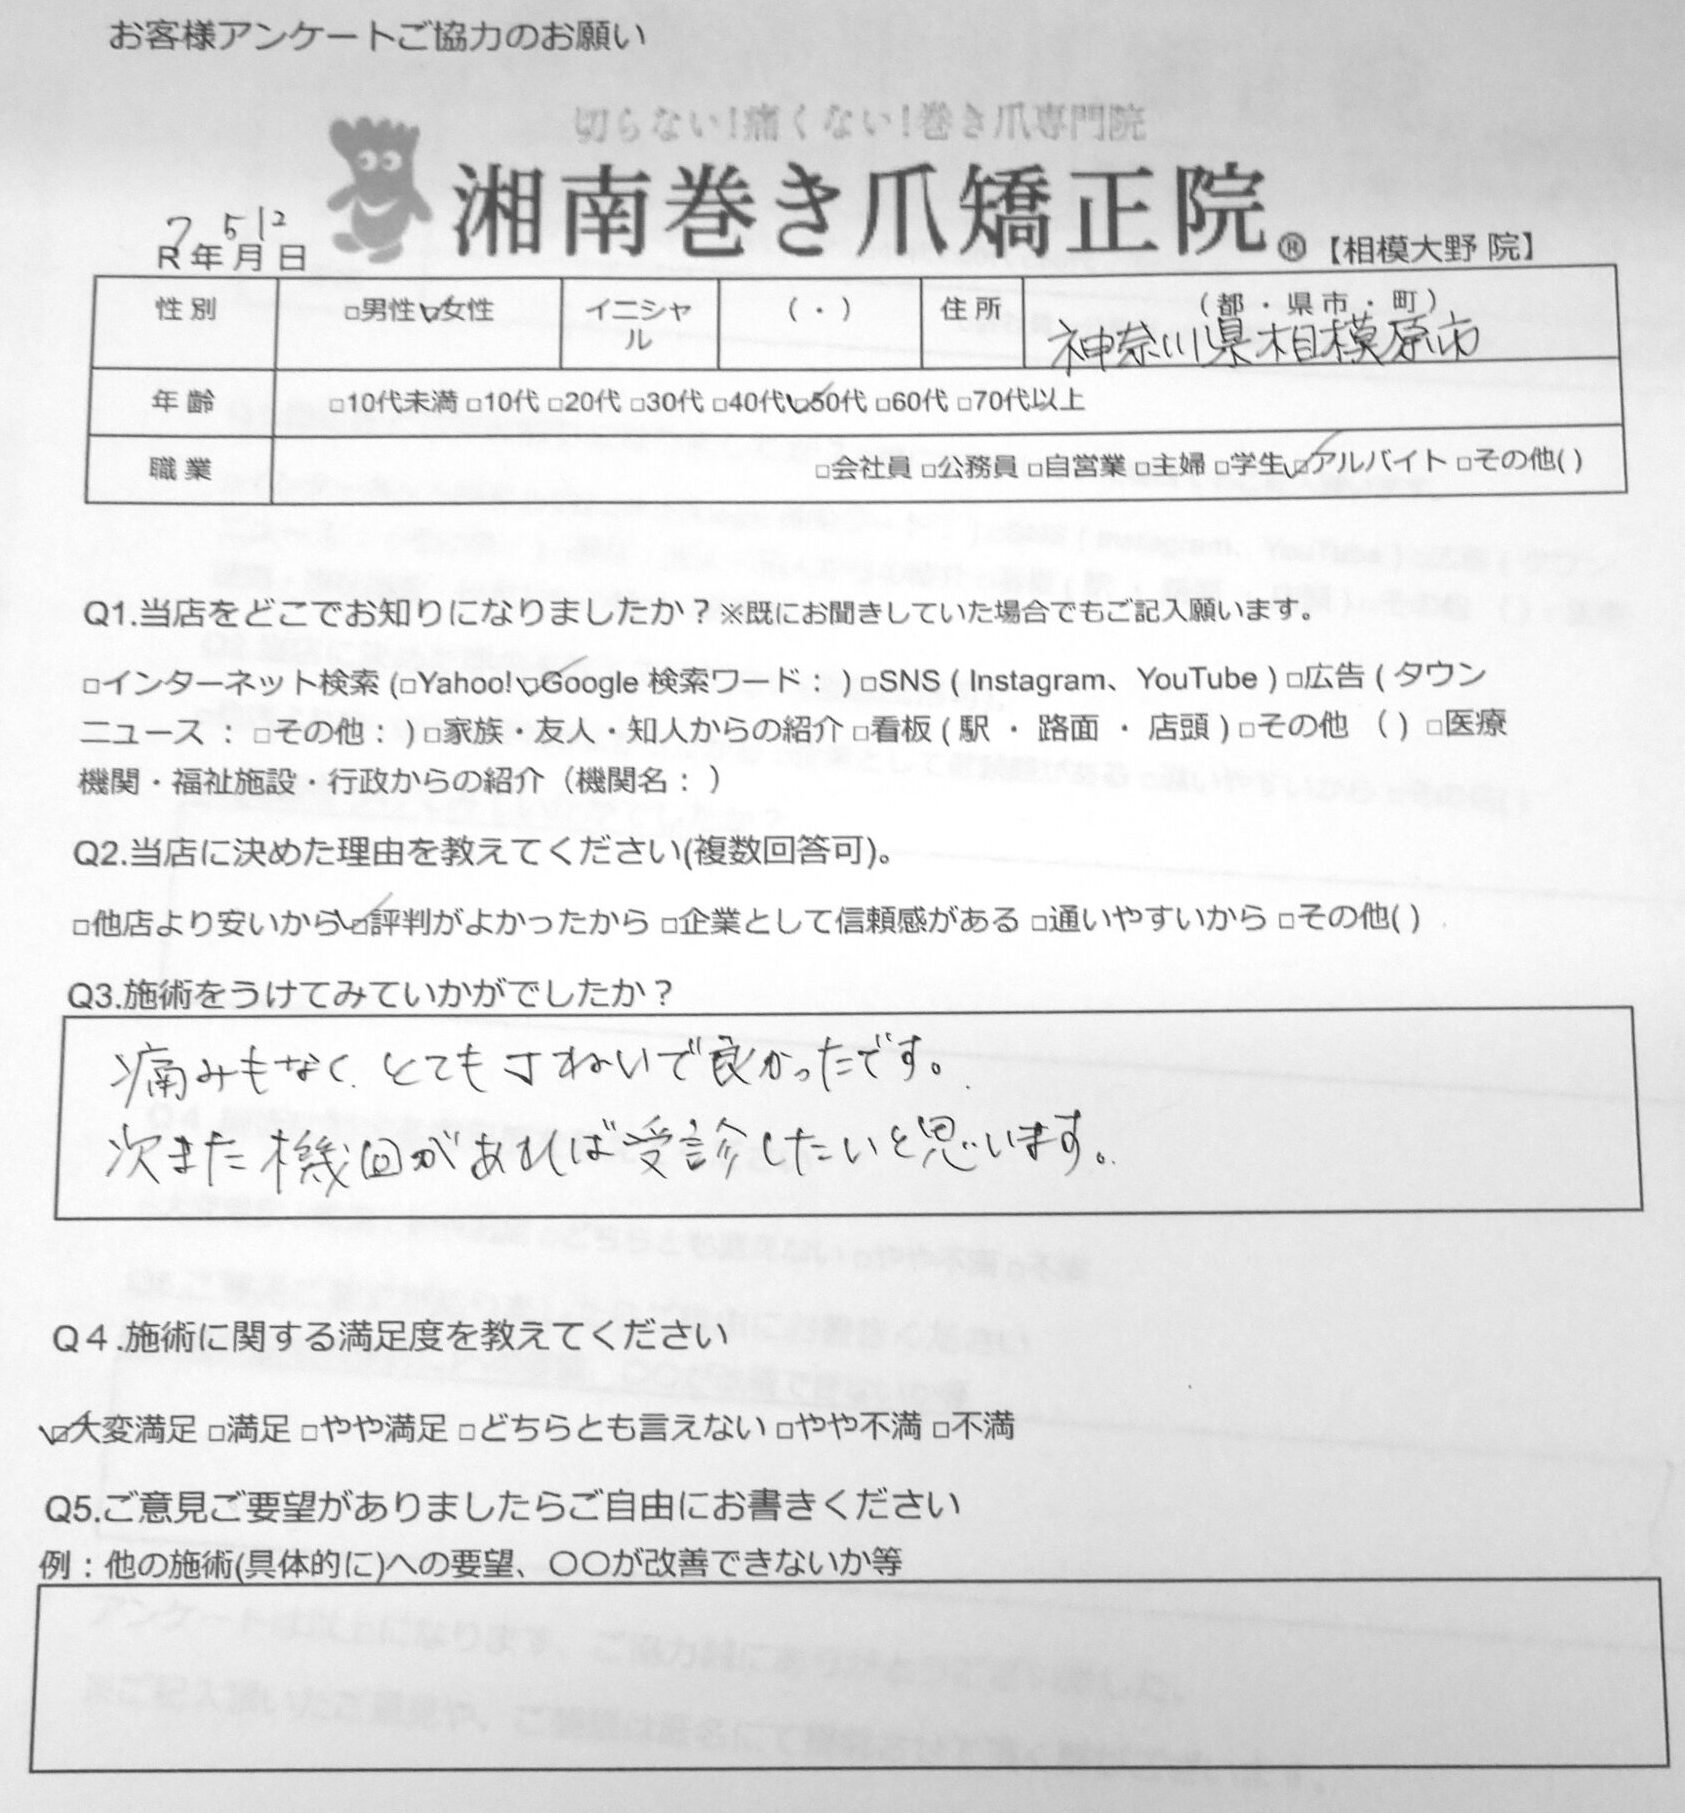 お客様アンケートご協力のお願い
切らない!痛くない!巻き爪専門院
湘南巻き爪矯正院® 【相模大野 院】
7 5 12
R年月日
性別 □男性 ☑女性 イニシャル ( ・ ) 住所 (都・県市・町)
神奈川県相模原市
年齢 □10代未満 □10代 □20代 □30代 □40代 ☑50代 □60代 □70代以上
職業 □会社員 □公務員 □自営業 □主婦 □学生 ☑アルバイト □その他( )
Q1.当店をどこでお知りになりましたか?※既にお聞きしていた場合でもご記入願います。
□インターネット検索 (□Yahoo! ☑Google 検索ワード: ) □SNS ( Instagram、YouTube ) □広告 ( タウン
ニュース : □その他: ) □家族・友人・知人からの紹介 □看板 ( 駅 ・ 路面 ・ 店頭 ) □その他 ( ) □医療
機関・福祉施設・行政からの紹介(機関名: )
Q2.当店に決めた理由を教えてください(複数回答可)。
□他店より安いから ☑評判がよかったから □企業として信頼感がある □通いやすいから □その他( )
Q3.施術をうけてみていかがでしたか?
痛みもなく、とてもていねいで良かったです。
次また機回があれば受診したいと思います。
Q4.施術に関する満足度を教えてください
☑大変満足 □満足 □やや満足 □どちらとも言えない □やや不満 □不満
Q5.ご意見ご要望がありましたらご自由にお書きください
例:他の施術(具体的に)への要望、〇〇が改善できないか等